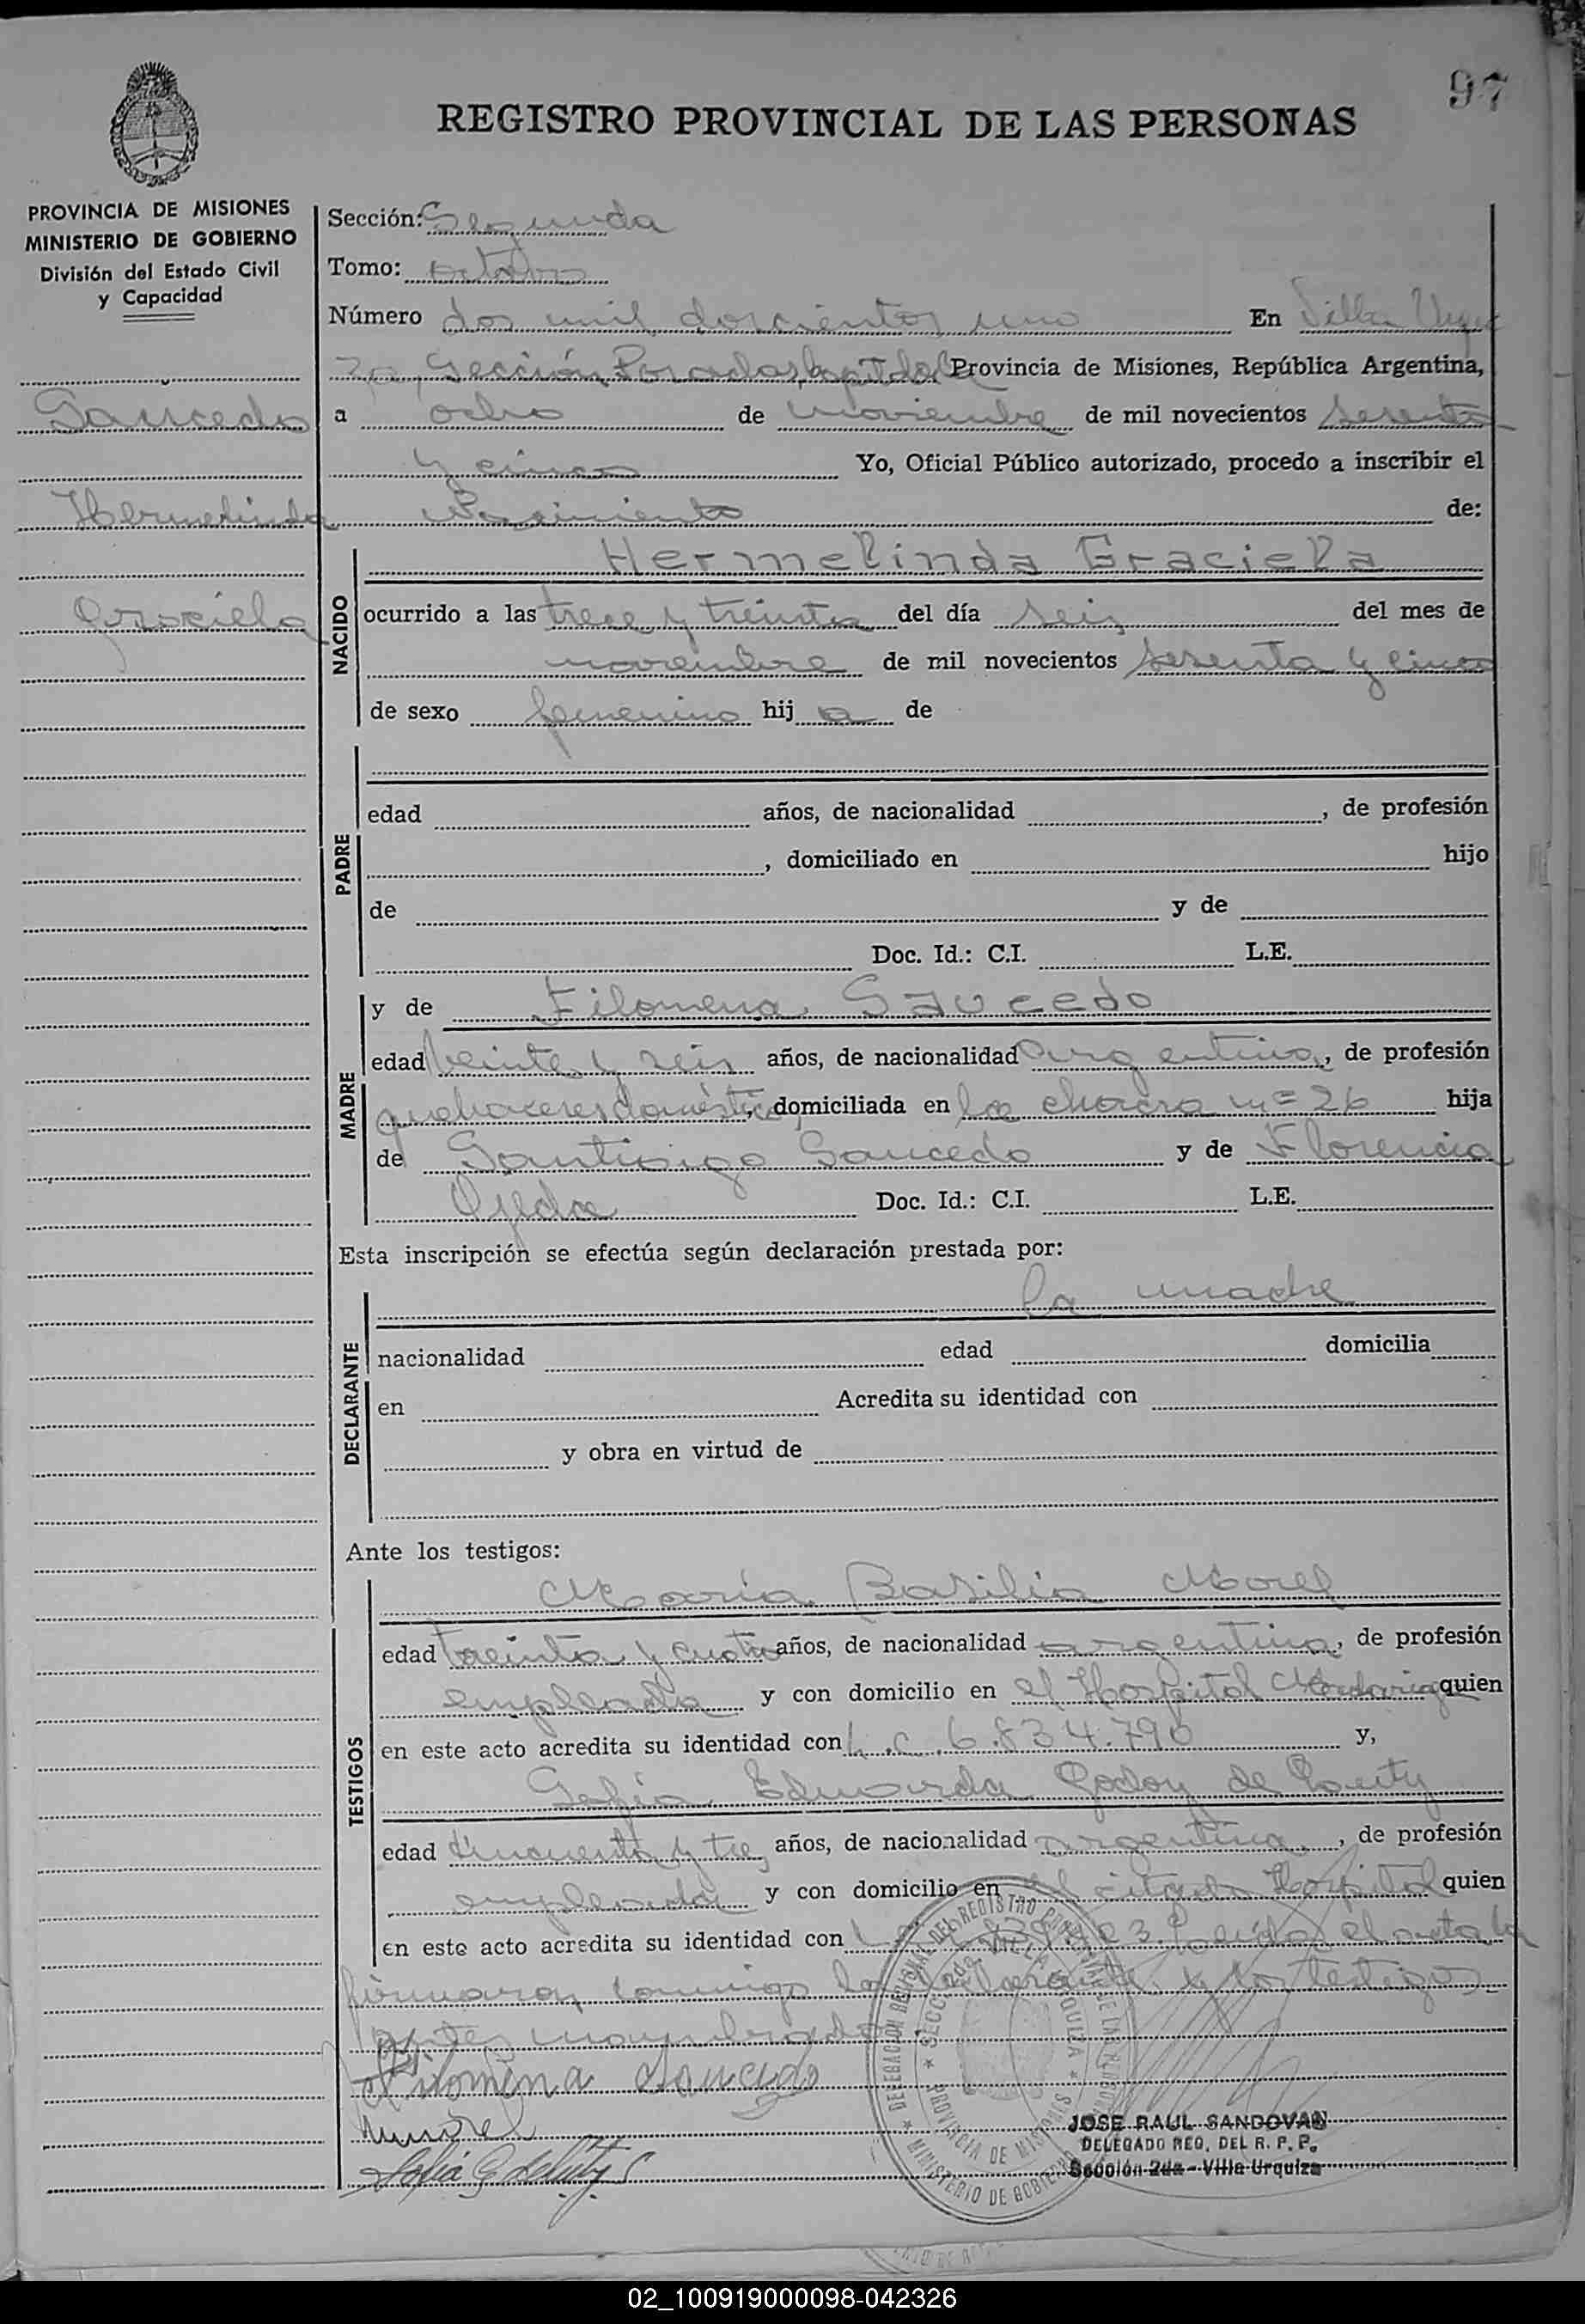 97
REGISTRO PROVINCIAL DE LAS PERSONAS
PROVINCIA DE MISIONES
MINISTERIO DE GOBIERNO
División del Estado Civil
y Capacidad
Saucedo
Hermelinda
Graciela
Sección: Segunda
Tomo: octavo
Número dos mil doscientos uno En Villa Urqui
za, Sección, Posadas, Capital Provincia de Misiones, República Argentina,
a ocho de noviembre de mil novecientos sesenta
y cinco Yo, Oficial Público autorizado, procedo a inscribir el
Nacimiento de:
NACIDO
Hermelinda Graciela
ocurrido a las trece y treinta del día seis del mes de
noviembre de mil novecientos sesenta y cinco
de sexo femenino hij a de
PADRE
edad años, de nacionalidad , de profesión
, domiciliado en hijo
de y de
Doc. Id.: C.I. L.E.
MADRE
y de Filomena Saucedo
edad veinte y seis años, de nacionalidad argentina, de profesión
quehaceres domésticos, domiciliada en la chacra nº 26 hija
de Santiago Saucedo y de Florencia
Ojeda Doc. Id.: C.I. L.E.
Esta inscripción se efectúa según declaración prestada por:
DECLARANTE
la madre
nacionalidad edad domicilia
en Acredita su identidad con
y obra en virtud de
Ante los testigos:
TESTIGOS
María Basilia Morel
edad treinta y cuatro años, de nacionalidad argentina, de profesión
empleada y con domicilio en el Hospital Madariaga quien
en este acto acredita su identidad con L.C. 6.834.790 y,
Sofía Eduarda Godoy de
edad cincuenta y tres años, de nacionalidad argentina, de profesión
empleada y con domicilio en el citado Hospital quien
en este acto acredita su identidad con Leída el acta la
firmaron conmigo la declarante y los testigos
antes nombrados
Filomena Saucedo
Morel
Sofia G de
DELEGACION REGIONAL DEL REGISTRO PROVINCIAL DE LAS PERSONAS
SECC. 2da. VILLA URQUIZA
PROVINCIA DE MISIONES
MINISTERIO DE GOBIERNO
JOSE RAUL SANDOVAL
DELEGADO REG. DEL R. P. P.
Sección 2da - Villa Urquiza
02_100919000098-042326